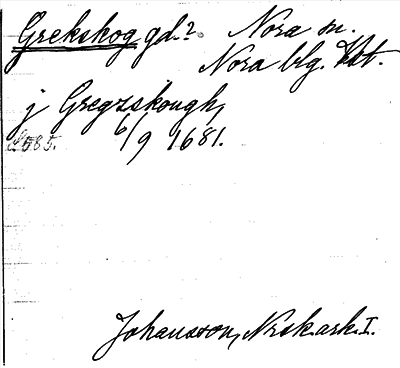 Grekskog gd.? Nora sn.
Nora blg. Vstl.
j Gregzskough,
6/9 1681.
Johansson, Nrsk.ark. I.